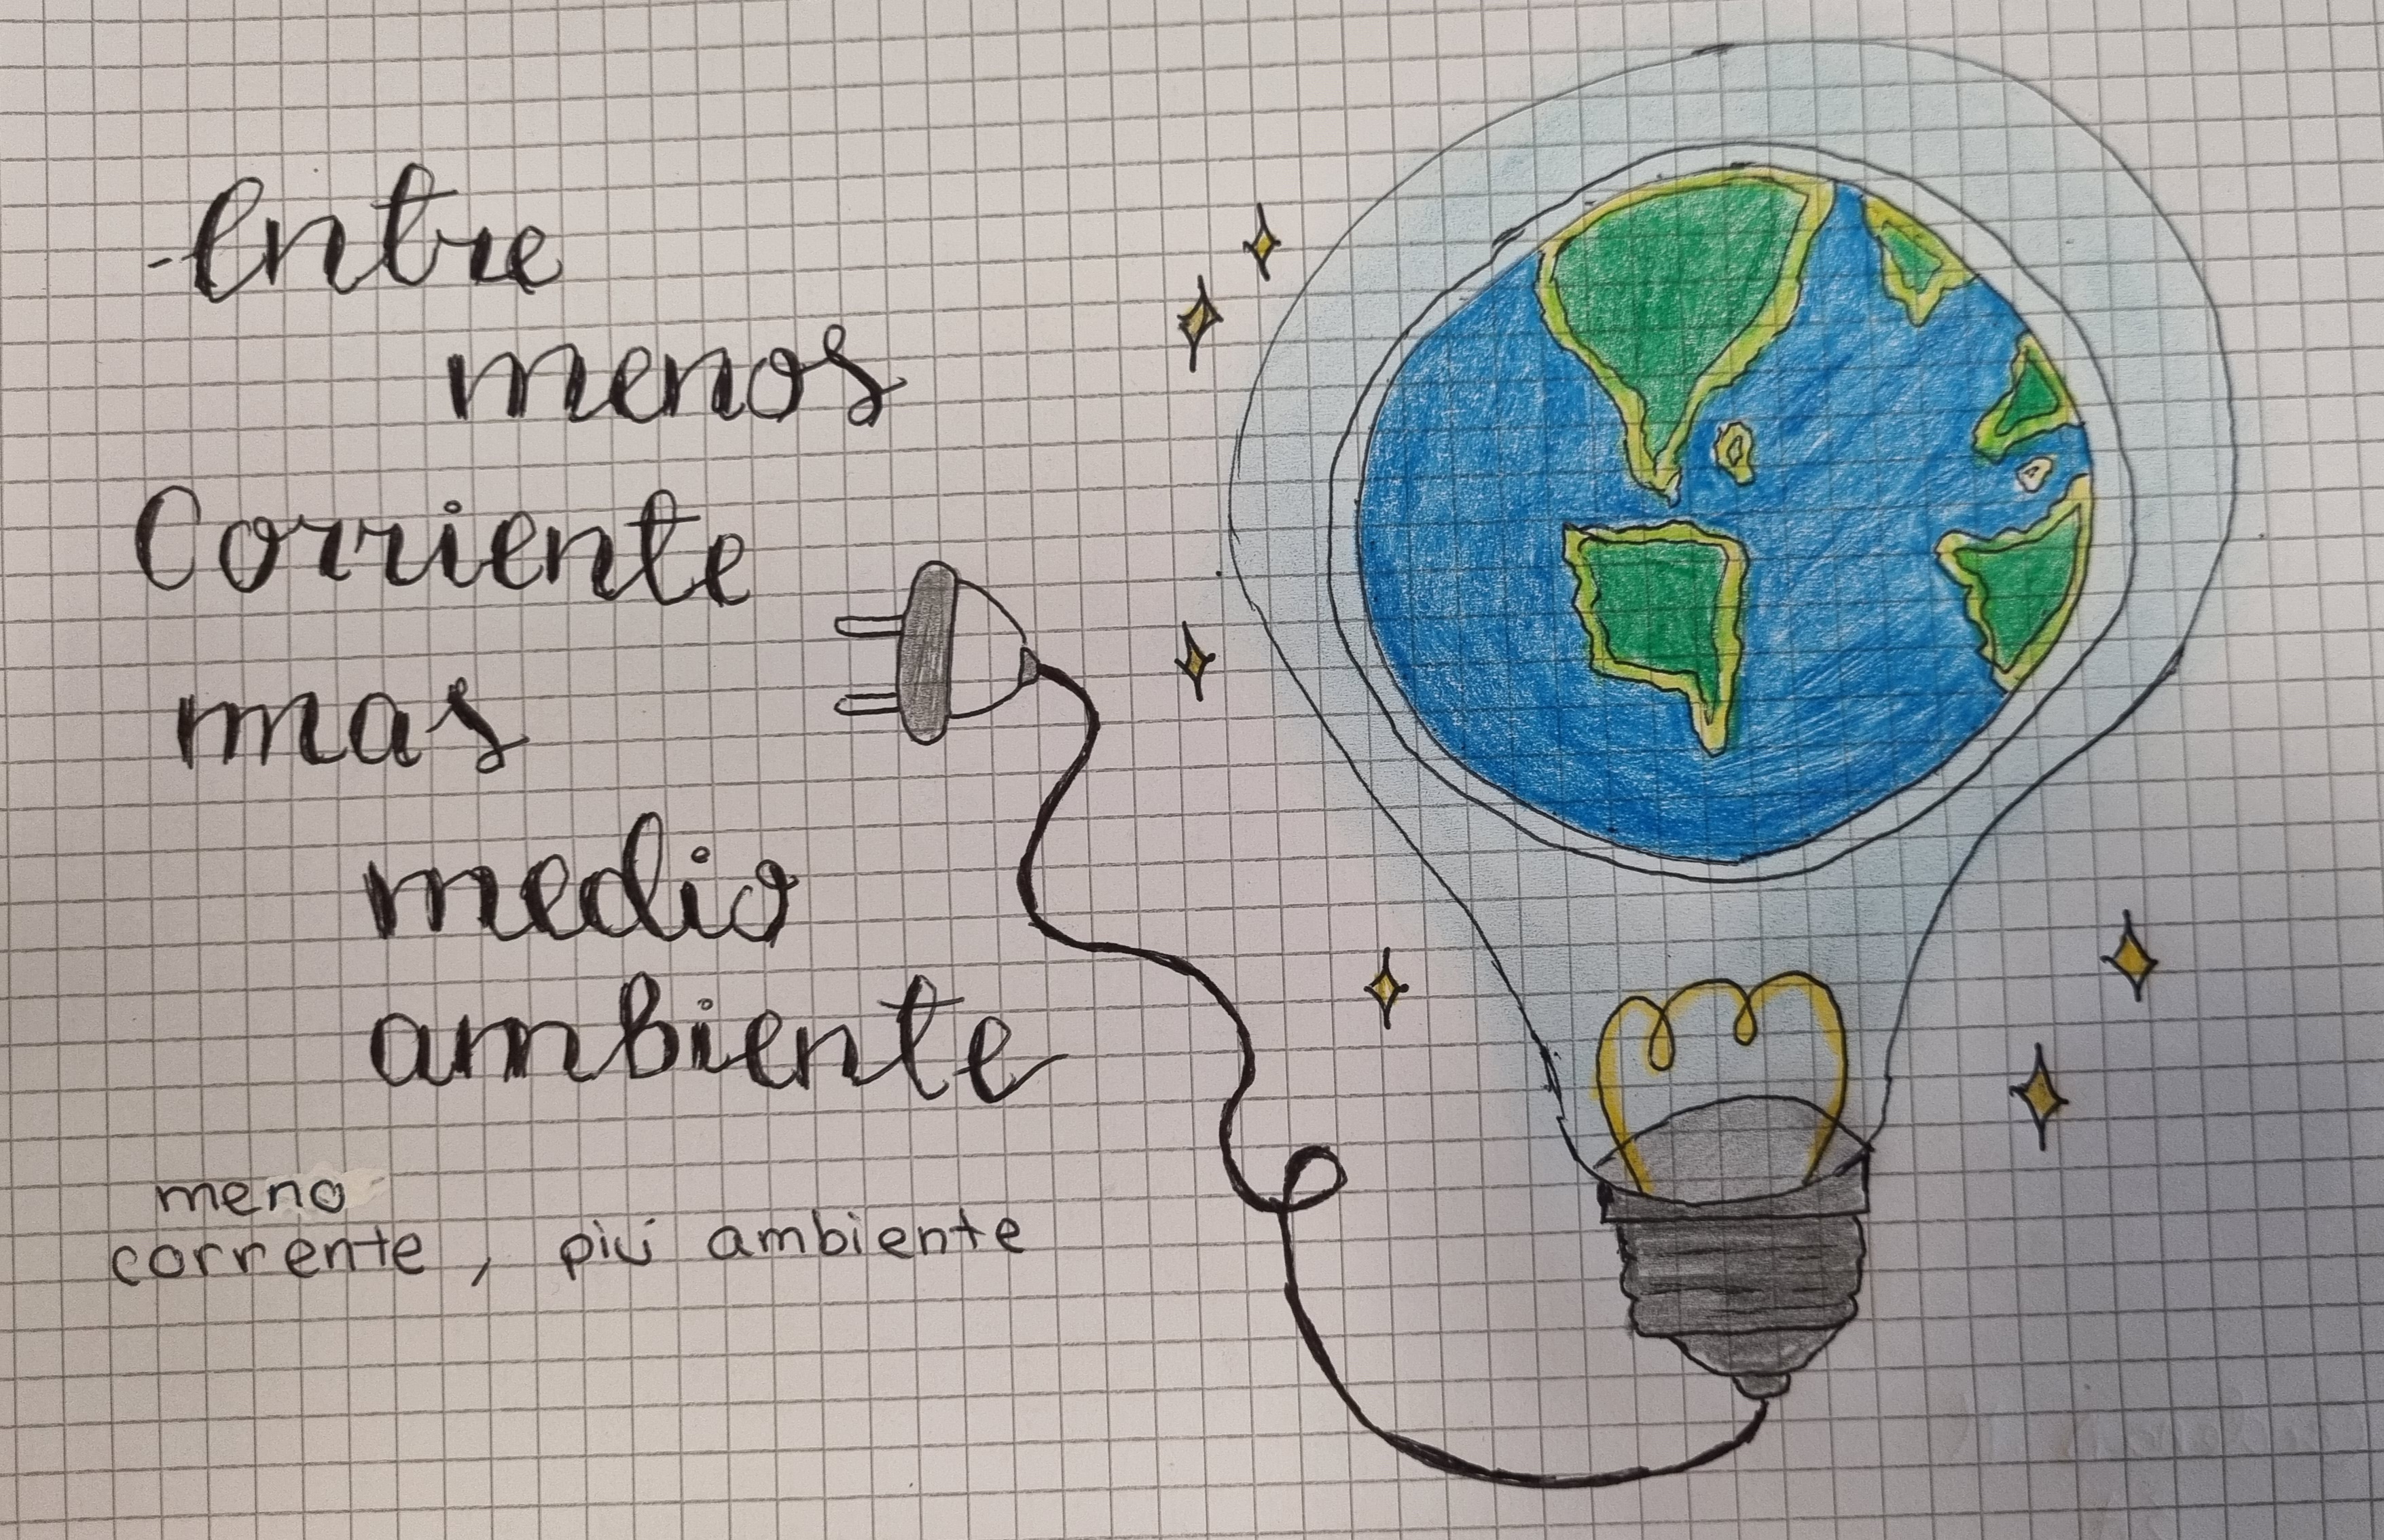 -Entre
menos
Corriente
mas
medio
ambiente
meno
corrente, piú ambiente